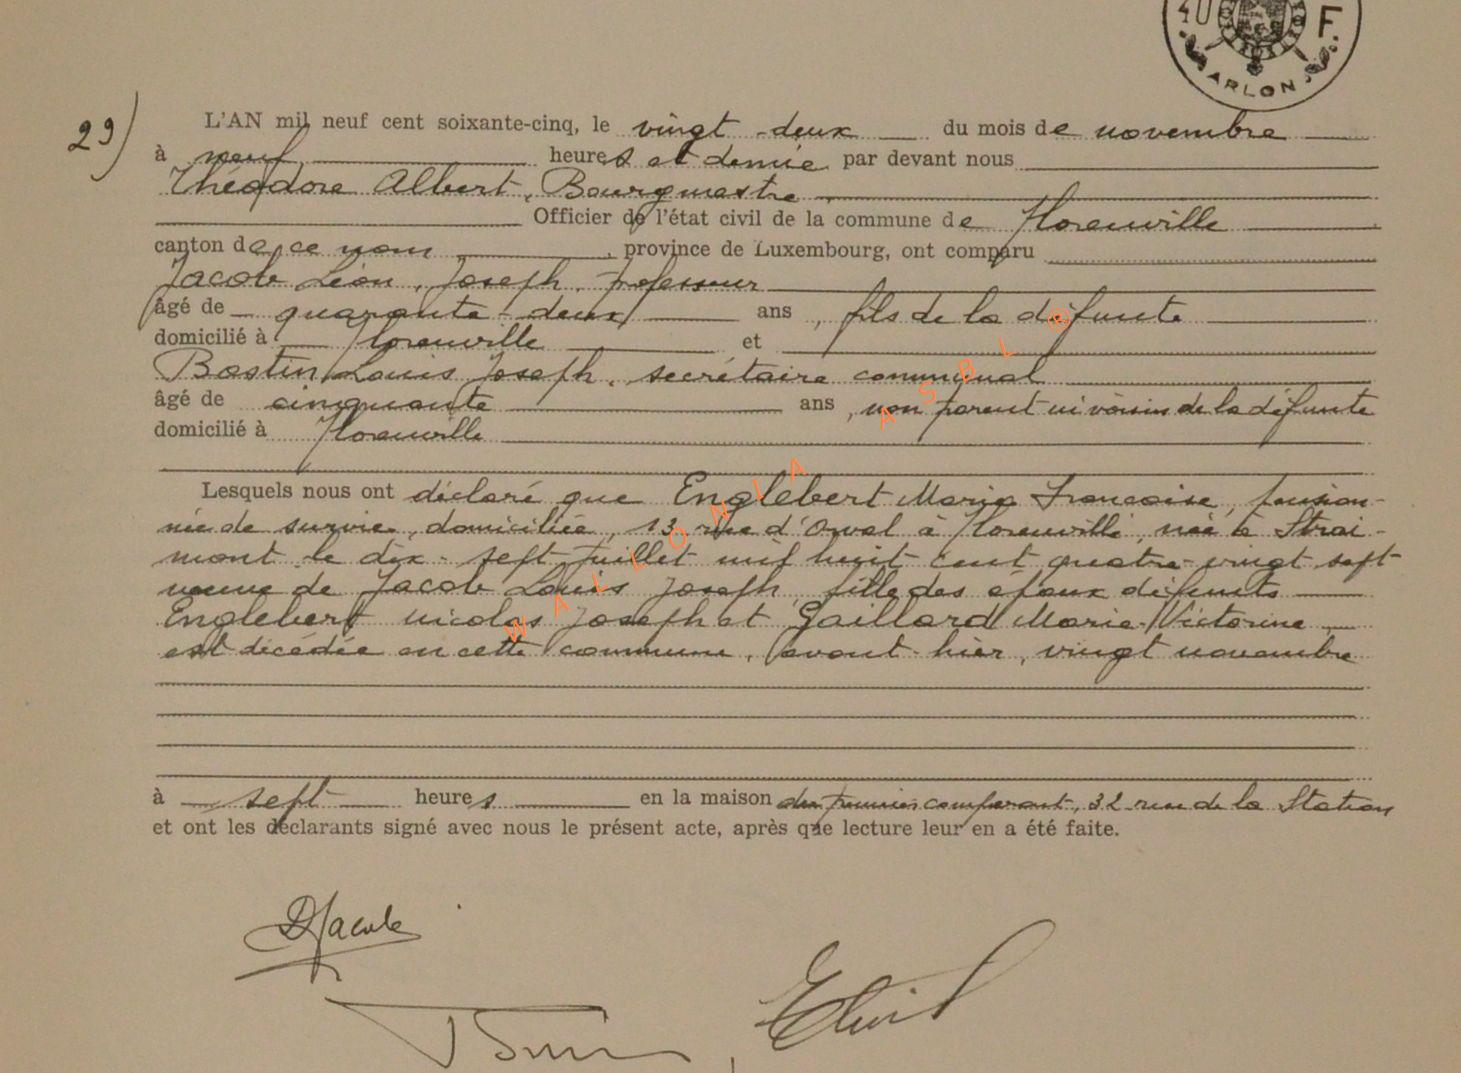 40 F.
ARLON
29)
L'AN mil neuf cent soixante-cinq, le vingt-deux du mois de novembre
à neuf heures et demie par devant nous
Théodore Albert, Bourgmestre,
Officier de l'état civil de la commune de Florenville
canton de ce nom, province de Luxembourg, ont comparu
Jacob Léon, Joseph, professeur
âgé de quarante-deux ans, fils de la défunte
domicilié à Florenville et
Bastin Louis Joseph, secrétaire communal
âgé de cinquante ans, non parent ni voisin de la défunte
domicilié à Florenville
Lesquels nous ont déclaré que Englebert Marie Françoise, pension-
née de survie, domiciliée, 13 rue d'Orval à Florenville, née à Strai-
mont le dix-sept juillet mil huit cent quatre-vingt sept
veuve de Jacob Louis Joseph, fille des époux défunts
Englebert Nicolas Joseph et Gaillard Marie-Victorine,
est décédée en cette commune, avant-hier, vingt novembre
à sept heures en la maison du premier comparant, 32 rue de la Station
et ont les déclarants signé avec nous le présent acte, après que lecture leur en a été faite.
Jacob
WALLONIA ASBL